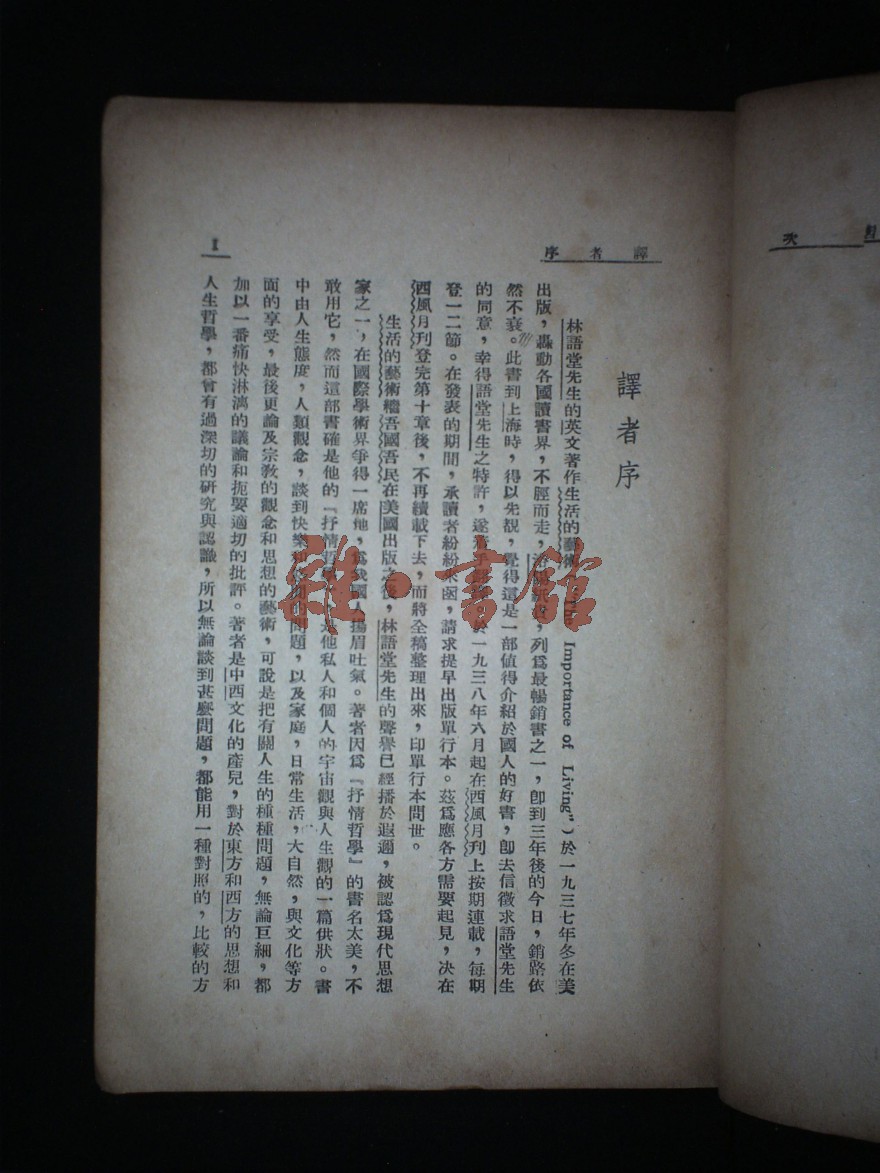 目次
譯者序
I
譯者序
林語堂先生的英文著作生活的藝術 The Importance of Living")於一九三七年冬在美
出版,轟動各國讀書界,不脛而走,洛陽紙貴,列為最暢銷書之一,卽到三年後的今日,銷路依
然不衰。此書到上海時,得以先覩,覺得這是一部值得介紹於國人的好書,卽去信徵求語堂先生
的同意,幸得語堂先生之特許,遂着手 於一九三八年六月起在西風月刋上按期連載,每期
登一二節。在發表的期間,承讀者紛紛來函,請求提早出版單行本。茲為應各方需要起見,决在
西風月刋登完第十章後,不再續載下去,而將全稿整理出來,印單行本問世。
生活的藝術繼吾國吾民在美國出版之後,林語堂先生的聲譽已經播於遐邇,被認為現代思想
家之一,在國際學術界爭得一席地,為我國人揚眉吐氣。著者因為『抒情哲學』的書名太美,不
敢用它,然而這部書確是他的『抒情哲 是他私人和個人的宇宙觀與人生觀的一篇供狀。書
中由人生態度,人類觀念,談到快樂和 的問題,以及家庭,日常生活,大自然,與文化等方
面的享受,最後更論及宗教的觀念和思想的藝術,可說是把有關人生的種種問題,無論巨細,都
加以一番痛快淋漓的議論和扼要適切的批評。著者是中西文化的產兒,對於東方和西方的思想和
人生哲學,都曾有過深切的研究與認識,所以無論談到甚麼問題,都能用一種對照的,比較的方
雜·書館